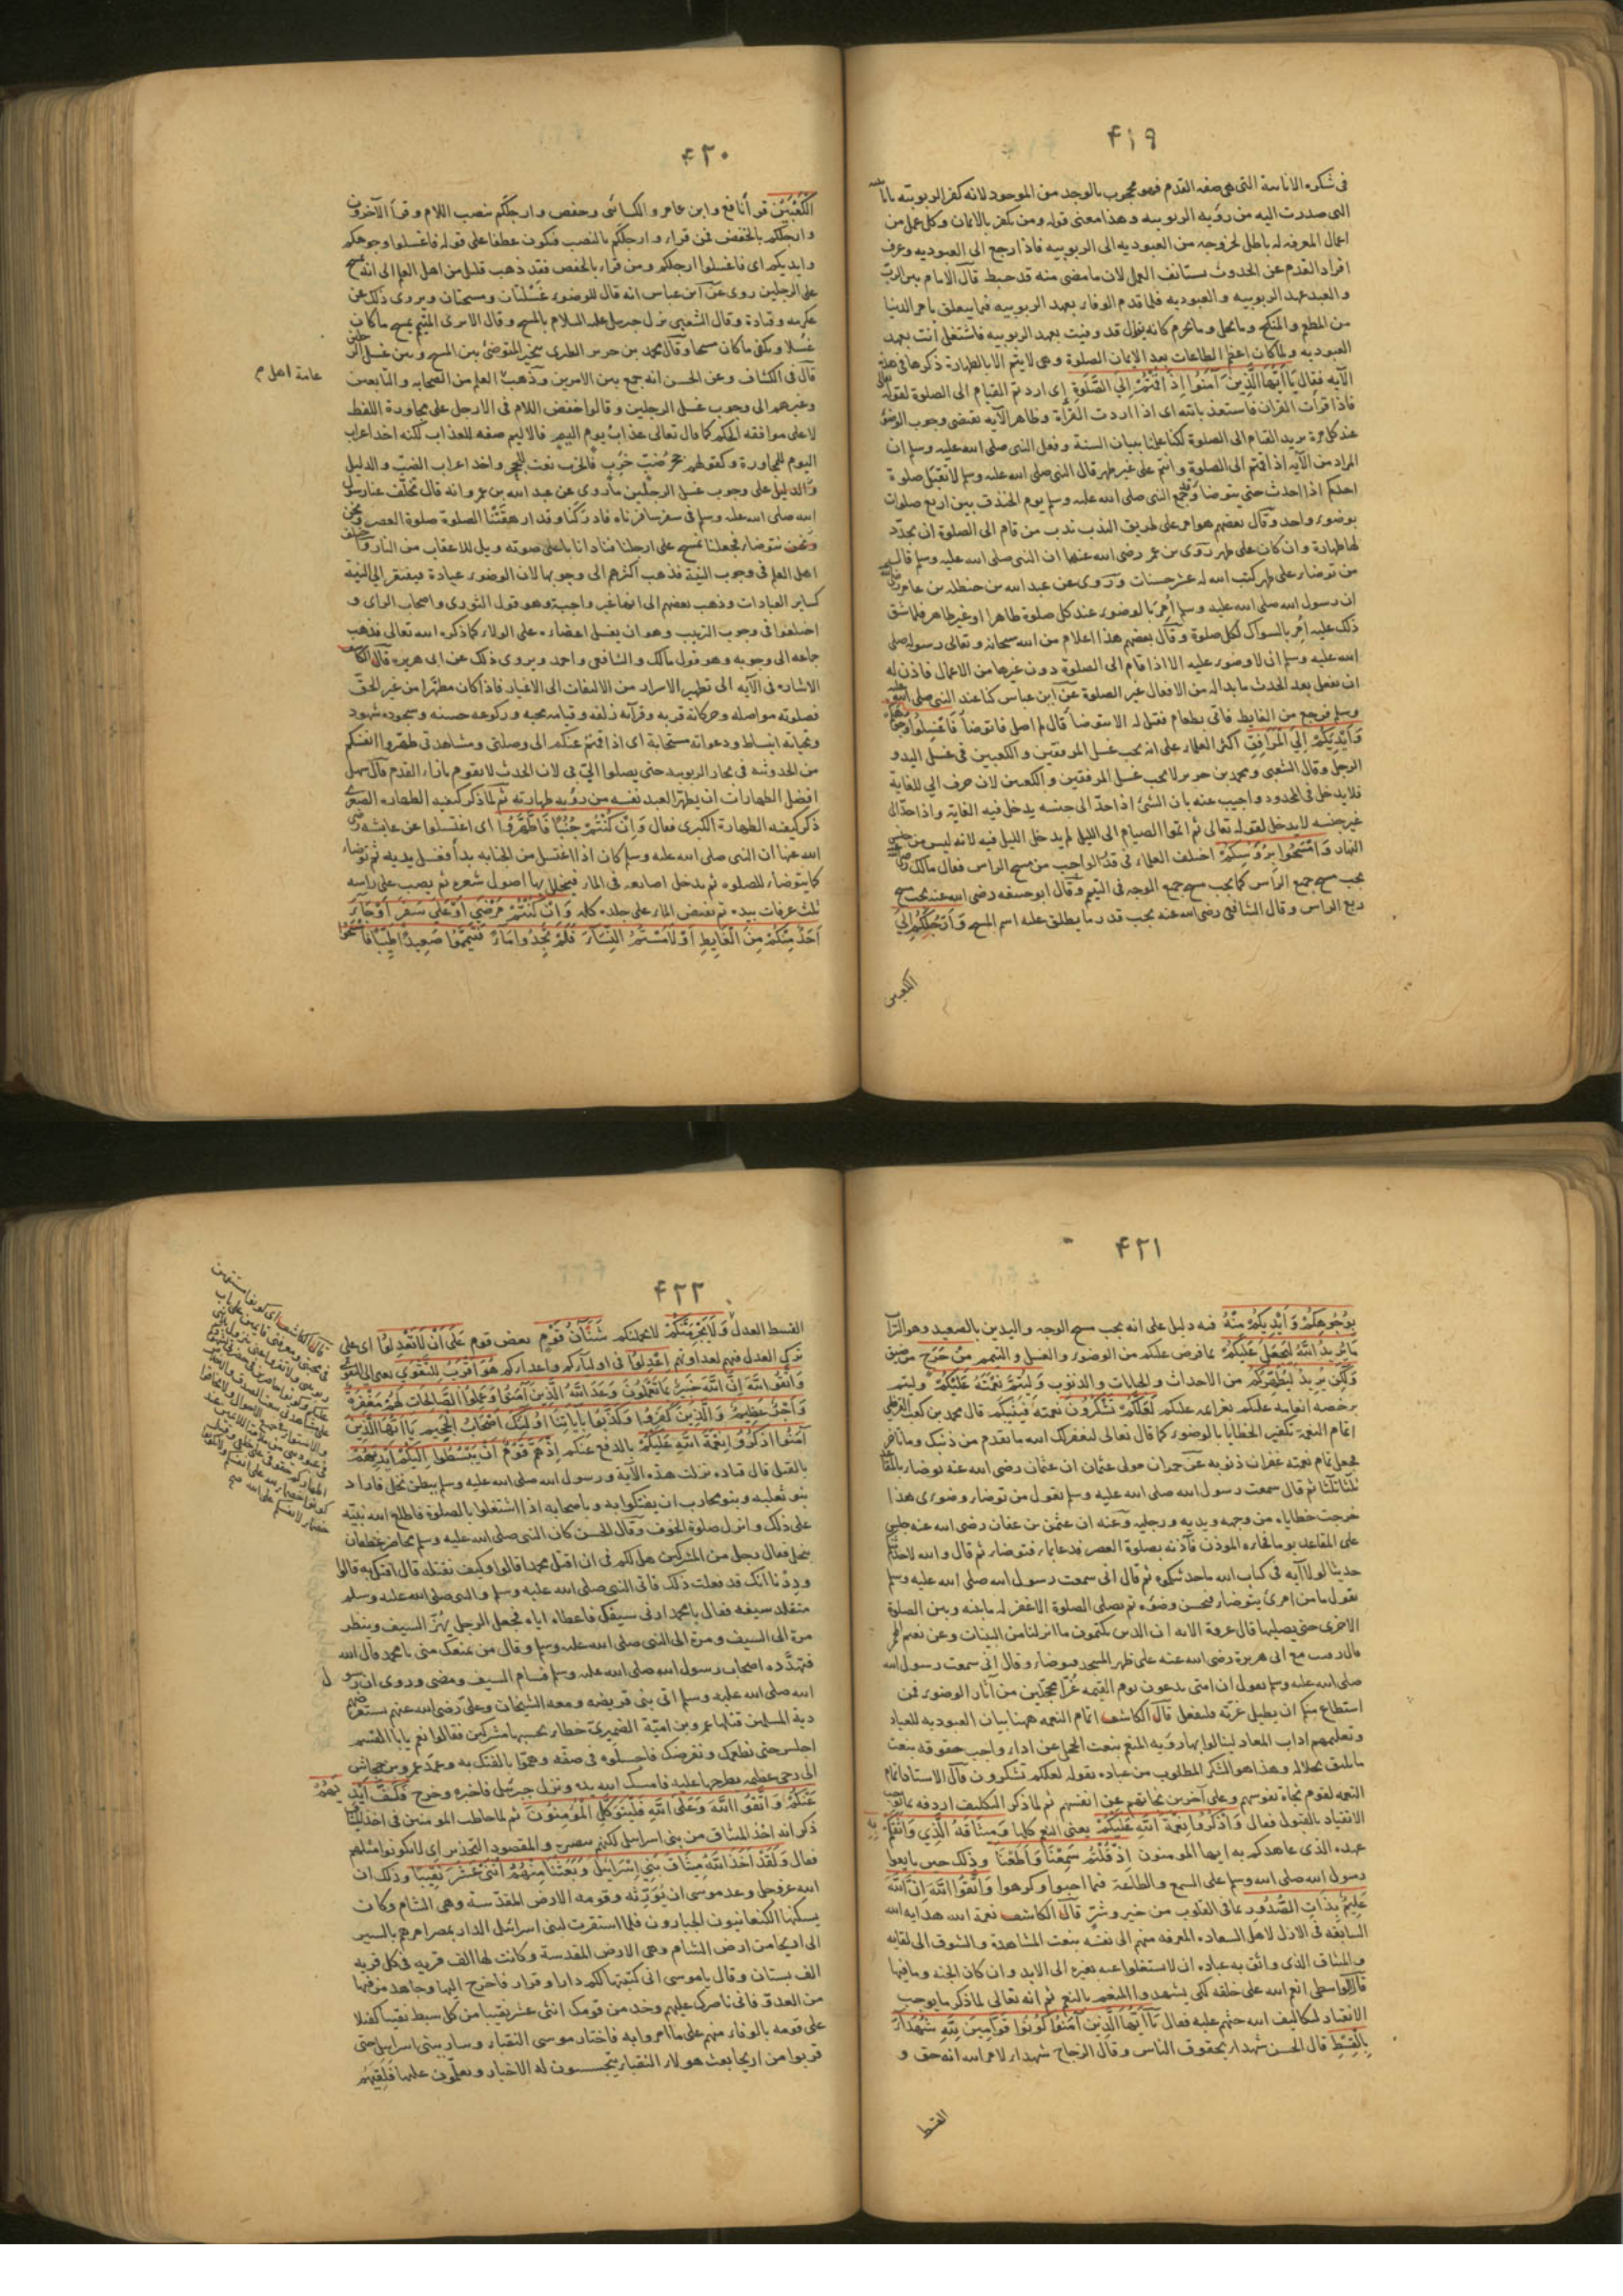 ۴۱۹
التى صدرت اليه من رؤيه الربوبيه وهذا معنى قوله ومن يكفر بالايمان وكل عمل من
اعمال المعرفه له باطل لخروجه من العبوديه الى الربوبيه فاذا رجع الى العبوديه وعرف
افراد القدم عن الحدوث يستانف العمل لان ما مضى منه قد حبط قال الامام بين الرب
والعبد عهد الربوبيه والعبوديه فلما قدم الوفاء بعهد الربوبيه فيما يتعلق بامر الدنيا
من المطعم والمنكح وما يحل وما يحرم كانه يقول قد وفيت بعهد الربوبيه فاشتغل أنت بعهد
العبوديه ولما كان اعظم الطاعات بعد الايمان الصلوة وهى لا يتم الا بالطهارة ذكرها فى هذه
الآيه فقال يَا أَيُّهَا الَّذِينَ آمَنُوا إِذَا قُمْتُمْ إِلَى الصَّلَوةِ اى اردتم القيام الى الصلوة لقوله
فاذا قرأت القران فاستعذ بالله اى اذا اردت القرأة وظاهر الآيه يقتضى وجوب الوضوء
عند كل مرة يريد القيام الى الصلوة لكنا علمنا ببيان السنة وفعل النبى صلى الله عليه وسلم ان
المراد من الآيه اذا قمتم الى الصلوة وانتم على غير طهر قال النبى صلى الله عليه وسلم لا تقبل صلوة
احدكم اذا احدث حتى يتوضا وجمع النبى صلى الله عليه وسلم يوم الخندق بين اربع صلوات
بوضوء واحد وقال بعضهم هو امر على طريق الندب ندب من قام الى الصلوة ان يجدد
لها طهارة وان كان على طهر روى بن عمر رضى الله عنهما ان النبى صلى الله عليه وسلم قال
من توضاء على طهر كتب الله له عشر حسنات وروى عن عبد الله بن حنظله بن عامر
ان رسول الله صلى الله عليه وسلم أُمِرَ بالوضوء عند كل صلوة طاهرا او غير طاهر فلما شق
ذلك عليه أمر بالسواك لكل صلوة وقال بعضهم هذا اعلام من الله سبحانه وتعالى رسوله صلى
الله عليه وسلم ان لا وضوء عليه الا اذا قام الى الصلوة دون غيرها من الاعمال فاذن له
ان يفعل بعد الحدث ما بدا له من الافعال غير الصلوة عن ابن عباس كنا عند النبى صلى الله عليه
وسلم فرجع من الغايط فاتى بطعام فقيل له الا تتوضا قال لم اصل فاتوضأ فَاغْسِلُوا وُجُوهَكُمْ
وَأَيْدِيَكُمْ إِلَى الْمَرَافِقِ اكثر العلماء على انه يجب غسل المرفقين والكعبين فى غسل اليد و
الرجل وقال الشعبى ومحمد بن جرير لا يجب غسل المرفقين والكعبين لان حرف الى للغاية
فلا يدخل فى المحدود واجيب عنه بان الشئ اذا حدّ الى جنسه يدخل فيه الغاية واذا حدّ الى
غير جنسه لا يدخل لقوله تعالى ثم اتموا الصيام الى الليل لم يدخل الليل فيه لانه ليس من جنس
النهار وَامْسَحُوا بِرُؤُسِكُمْ اختلف العلماء فى قدر الواجب من مسح الراس فقال مالك
يجب مسح جميع الرأس كما يجب مسح جميع الوجه فى التيمم وقال ابو حنيفه رضى الله عنه يجب مسح
ربع الراس وقال الشافعى رضى الله عنه يجب قدر ما يطلق عليه اسم المسح وَأَرْجُلَكُمْ إِلَى
الكعبين
۴۲۰
الْكَعْبَيْنِ قرأ نافع وابن عامر والكسائى وحفص وارجلكم بنصب اللام وقرأ الآخرون
وارجلكم بالخفض فمن قراء وارجلكم بالنصب فيكون عطفا على قوله فاغسلوا وجوهكم
وايديكم اى فاغسلوا ارجلكم ومن قراء بالخفض فقد ذهب قليل من اهل العلم الى انه يمسح
على الرجلين روى عن ابن عباس انه قال الوضوء غَسْلتان ومسحتان ويروى ذلك عن
عكرمه وقتادة وقال الشعبى نزل جبريل عليه السلام بالمسح وقال الا ترى المتيمم يمسح ما كان
غسلا ويلغى ما كان مسحا وقال محمد بن جرير الطبرى يتخير المتوضئ بين المسح وبين غسل
قال فى الكشاف وعن الحسن انه جمع بين الامرين وذهب العلم من الصحابه والتابعين
عامة اهل م
وغيرهم الى وجوب غسل الرجلين وقالوا خفض اللام فى الارجل على مجاورة اللفظ
لا على موافقه الحكم كما قال تعالى عذاب يوم اليم فالاليم صفه للعذاب لكنه اخذ اعراب
اليوم للمجاورة وكقولهم جحر ضبّ خرب فالخرب نعت للجحر واخذ اعراب الضب والدليل
والدليل على وجوب غسل الرجلين ما روى عن عبد الله بن عمرو انه قال تخلّف عنا رسول
الله صلى الله عليه وسلم فى سفر سافرناه فادركنا وقد ارهقتنا الصلوة صلوة العصر
ونحن نتوضاء فجعلنا نمسح على ارجلنا فنادانا باعلى صوته ويل للاعقاب من النار
اهل العلم فى وجوب النية فذهب اكثرهم الى وجوبها لان الوضوء عبادة فيفتقر الى النية
كساير العبادات وذهب بعضهم الى انها غير واجبة وهو قول الثورى واصحاب الراى و
اختلفوا فى وجوب الترتيب وهو ان يغسل اعضاءه على الولاء كما ذكره الله تعالى فذهب
جماعه الى وجوبه وهو قول مالك والشافعى واحمد ويروى ذلك عن ابى هريره قال
الاشاره فى الآيه الى تطهير الاسرار من الالتفات الى الاغيار فاذا كان مطهّرا من غير الحق
فصلوته مواصله وحركاته قربه وقرآنه زلفه وقيامه محبه وركوعه حسنه وسجوده شهود
وتحياته انبساط ودعواته مستجابة اى اذا قمتم عنكم الى وصلتى ومشاهدتى طهروا انفسكم
من الحدوثيه فى بحار الربوبيه حتى يصلوا الىّ بى لان الحدث لا يقوم بازاء القدم قال سهل
افضل الطهارات ان يطهر العبد نفسه من رؤيه طهارته ثم لما ذكر كيفيه الطهاره الصغرى
ذكر كيفيه الطهارة الكبرى فقال وَإِنْ كُنْتُمْ جُنُبًا فَاطَّهَّرُوا اى اغتسلوا عن عايشه
الله عنها ان النبى صلى الله عليه وسلم كان اذا اغتسل من الجنابه بدأ فغسل يديه ثم توضاء
كما يتوضاء للصلوه ثم يدخل اصابعه فى الماء فيخلل بها اصول شعره ثم يصب على راسه
ثلث غرفات بيده ثم يفيض الماء على جلده كله وَإِنْ كُنْتُمْ مَرْضَى أَوْ عَلَى سَفَرٍ أَوْ جَاءَ
أَحَدٌ مِنْكُمْ مِنَ الْغَايِطِ أَوْ لَامَسْتُمُ النِّسَاءَ فَلَمْ تَجِدُوا مَاءً فَتَيَمَّمُوا صَعِيدًا طَيِّبًا فَامْسَحُوا
۴۲۱
بِوُجُوهِكُمْ وَأَيْدِيكُمْ مِنْهُ فيه دليل على انه يجب مسح الوجه واليدين بالصعيد وهو التراب
مَا يُرِيدُ اللَّهُ لِيَجْعَلَ عَلَيْكُمْ بما فرض عليكم من الوضوء والغسل والتيمم مِنْ حَرَجٍ من ضيق
وَلَكِنْ يُرِيدُ لِيُطَهِّرَكُمْ من الاحداث والجنابات والذنوب وَلِيُتِمَّ نِعْمَتَهُ عَلَيْكُمْ وليتم
برخصه انعامه عليكم بعزائمه عليكم لَعَلَّكُمْ تَشْكُرُونَ نعمته فيثيبكم قال محمد بن كعب القرظى
اتمام النعمة تكفير الخطايا بالوضوء كما قال تعالى ليغفر لك الله ما تقدم من ذنبك وما تاخر
فجعل تمام نعمته غفران ذنوبه عن حمران مولى عثمان ان عثمان رضى الله عنه توضاء بالمقاعد
ثلثا ثلثا ثم قال سمعت رسول الله صلى الله عليه وسلم يقول من توضاء وضوءى هذا
خرجت خطاياه من وجهه ويديه ورجليه وعنه ان عثمن بن عفان رضى الله عنه جلس
على المقاعد يوما فجاءه الموذن فآذنه بصلوة العصر فدعا بماء فتوضاء ثم قال والله لاحدثنكم
حديثا لولا آيه فى كتاب الله ما حدثتكموه ثم قال انى سمعت رسول الله صلى الله عليه وسلم
يقول ما من امرئ يتوضاء فيحسن وضوءه ثم يصلى الصلوة الا غفر له ما بينه وبين الصلوة
الاخرى حتى يصليها قال عروة الآيه ان الذين يكتمون ما انزلنا من البينات وعن نعيم المجمر
قال رقيت مع ابى هريرة رضى الله عنه على ظهر المسجد فتوضاء وقال انى سمعت رسول الله
صلى الله عليه وسلم يقول ان امتى يدعون يوم القيمه غرّا محجّلين من آثار الوضوء فمن
استطاع منكم ان يطيل غرّته فليفعل قال الكاشف اتمام النعمه ههنا بيان العبوديه للعباد
وتعليمهم اداب المعاد لينالوا بها رؤيه المنعم بنعت العجز عن اداء واجب حقوقه بنعت
ما يليق بجلاله وهذا هو الشكر المطلوب من عباده بقوله لعلكم تشكرون قال الاستاذ اتمام
النعمه لقوم نجاة نفوسهم وعلى آخرين نجاتهم عن انفسهم ثم لما ذكر التكليف اردفه بما يوجب
الانقياد بالقبول فقال وَاذْكُرُوا نِعْمَةَ اللَّهِ عَلَيْكُمْ يعنى النعم كلها وَمِيثَاقَهُ الَّذِي وَاثَقَكُمْ بِهِ
عهده الذى عاهدكم به ايها المومنون إِذْ قُلْتُمْ سَمِعْنَا وَأَطَعْنَا وذلك حين بايعوا
رسول الله صلى الله وسلم على السمع والطاعة فيما احبوا وكرهوا وَاتَّقُوا اللَّهَ إِنَّ اللَّهَ
عَلِيمٌ بِذَاتِ الصُّدُورِ بما فى القلوب من خير وشرّ قال الكاشف نعمة الله هدايه الله
السابقه فى الازل لاهل السعاده المعرفه منهم الى نفسه بنعت المشاهدة والشوق الى لقايه
والميثاق الذى واثق به عباده ان لا يشتغلوا عنه بغيره الى الابد وان كان الجنه وما فيها
قال الواسطى انعم الله على خلقه لكى يشهدوا المنعم بالنعم ثم انه تعالى لما ذكر ما يوجب
الانقياد لتكاليف الله حثهم عليه فقال يَا أَيُّهَا الَّذِينَ آمَنُوا كُونُوا قَوَّامِينَ لِلَّهِ شُهَدَاءَ
بِالْقِسْطِ قال الحسن شهداء بحقوق الناس وقال الزجاج شهداء لامر الله انه حق و
القسط
۴۲۲
القسط العدل وَلَا يَجْرِمَنَّكُمْ لا يحملنكم شَنَآنُ قَوْمٍ بغض قوم عَلَى أَنْ لَا تَعْدِلُوا اى على
ترك العدل فيهم لعداوتهم اعْدِلُوا فى اوليآئكم واعدائكم هُوَ أَقْرَبُ لِلتَّقْوَى يعنى الى التقوى
وَاتَّقُوا اللَّهَ إِنَّ اللَّهَ خَبِيرٌ بِمَا تَعْمَلُونَ وَعَدَ اللَّهُ الَّذِينَ آمَنُوا وَعَمِلُوا الصَّالِحَاتِ لَهُمْ مَغْفِرَةٌ
وَأَجْرٌ عَظِيمٌ وَالَّذِينَ كَفَرُوا وَكَذَّبُوا بِآيَاتِنَا أُولَئِكَ أَصْحَابُ الْجَحِيمِ يَا أَيُّهَا الَّذِينَ
آمَنُوا اذْكُرُوا نِعْمَةَ اللَّهِ عَلَيْكُمْ بالدفع عنكم إِذْ هَمَّ قَوْمٌ أَنْ يَبْسُطُوا إِلَيْكُمْ أَيْدِيَهُمْ
بالقتل قال قتاده نزلت هذه الآية ورسول الله صلى الله عليه وسلم ببطن نخل فاراد
بنو ثعلبه وبنو محارب ان يفتكوا به وباصحابه اذا اشتغلوا بالصلوة فاطلع الله نبيّه
على ذلك وانزل صلوة الخوف وقال الحسن كان النبى صلى الله عليه وسلم محاصر غطفان
بنخل فقال رجل من المشركين هل لكم فى ان اقتل محمدا قالوا وكيف تقتله قال افتك به قالوا
وددنا انك قد فعلت ذلك فاتى النبى صلى الله عليه وسلم والنبى صلى الله عليه وسلم
متقلد سيفه فقال يا محمد ارنى سيفك فاعطاه اياه فجعل الرجل يهزّ السيف وينظر
مرة الى السيف ومرة الى النبى صلى الله عليه وسلم وقال من يمنعك منى يا محمد قال الله
فتهدّده اصحاب رسول الله صلى الله عليه وسلم فشام السيف ومضى وروى ان رسول
الله صلى الله عليه وسلم اتى بنى قريضه ومعه الشيخان وعلىّ رضى الله عنهم يستقرضهم
دية المسلمين قتلهما عمرو بن اميّة الضميرى خطاء يحسبهما مشركين فقالوا نعم يا ابا القسم
اجلس حتى نطعمك ونقرضك فاجلسوه فى صفّه وهمّوا بالفتك به وعمد عمرو بن جحاش
الى رحى عظيمه يطرحها عليه فامسك الله يده ونزل جبرئيل فاخبره وخرج فَكَفَّ أَيْدِيَهُمْ
عَنْكُمْ وَاتَّقُوا اللَّهَ وَعَلَى اللَّهِ فَلْيَتَوَكَّلِ الْمُؤْمِنُونَ ثم لما خاطب المومنين فى اخذ الميثاق
ذكر انه اخذ الميثاق من بنى اسرايل لكنهم والمقصود التحذير اى لا تكونوا مثلهم
فقال وَلَقَدْ أَخَذَ اللَّهُ مِيثَاقَ بَنِي إِسْرَائِيلَ وَبَعَثْنَا مِنْهُمُ اثْنَىْ عَشَرَ نَقِيبًا وذلك ان
الله عز وجل وعد موسى ان يورّثه وقومه الارض المقدّسة وهى الشام وكان
يسكنها الكنعانيون الجبارون فلما استقرت لبنى اسرائيل الدار بمصر امرهم بالسير
الى اريحا من ارض الشام وهى الارض المقدسة وكانت لها الف قريه فى كل قريه
الف بستان وقال يا موسى انى كتبتها لكم دارا وقرارا فاخرج اليها وجاهد من فيها
من العدو فانى ناصرك عليهم وخذ من قومك اثنى عشر نقيبا من كل سبط نقيبا كفيلا
على قومه بالوفاء منهم على ما امروا به فاختار موسى النقباء وسار ببنى اسرايل حتى
قربوا من اريحا بعث هولاء النقباء يتجسسون له الاخبار ويعلمون علمها فلقيهم